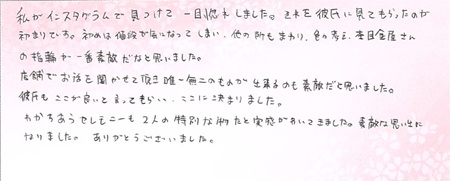 私がインスタグラムで見つけて一目惚れしました。それを彼氏に見てもらったのが
初まりです。初めは値段が気になってしまい、他の所もまわり、色々考え、杢目金屋さん
の指輪が一番素敵だなと思いました。
店舗でお話を聞かせて頂き唯一無二のものが出来るのも素敵だと思いました。
彼氏もここが良いと言ってもらい、ここに決まりました。
わかちあうセレモニーも2人の特別な物だと実感がわいてきました。素敵な思い出に
なりました。ありがとうございました。